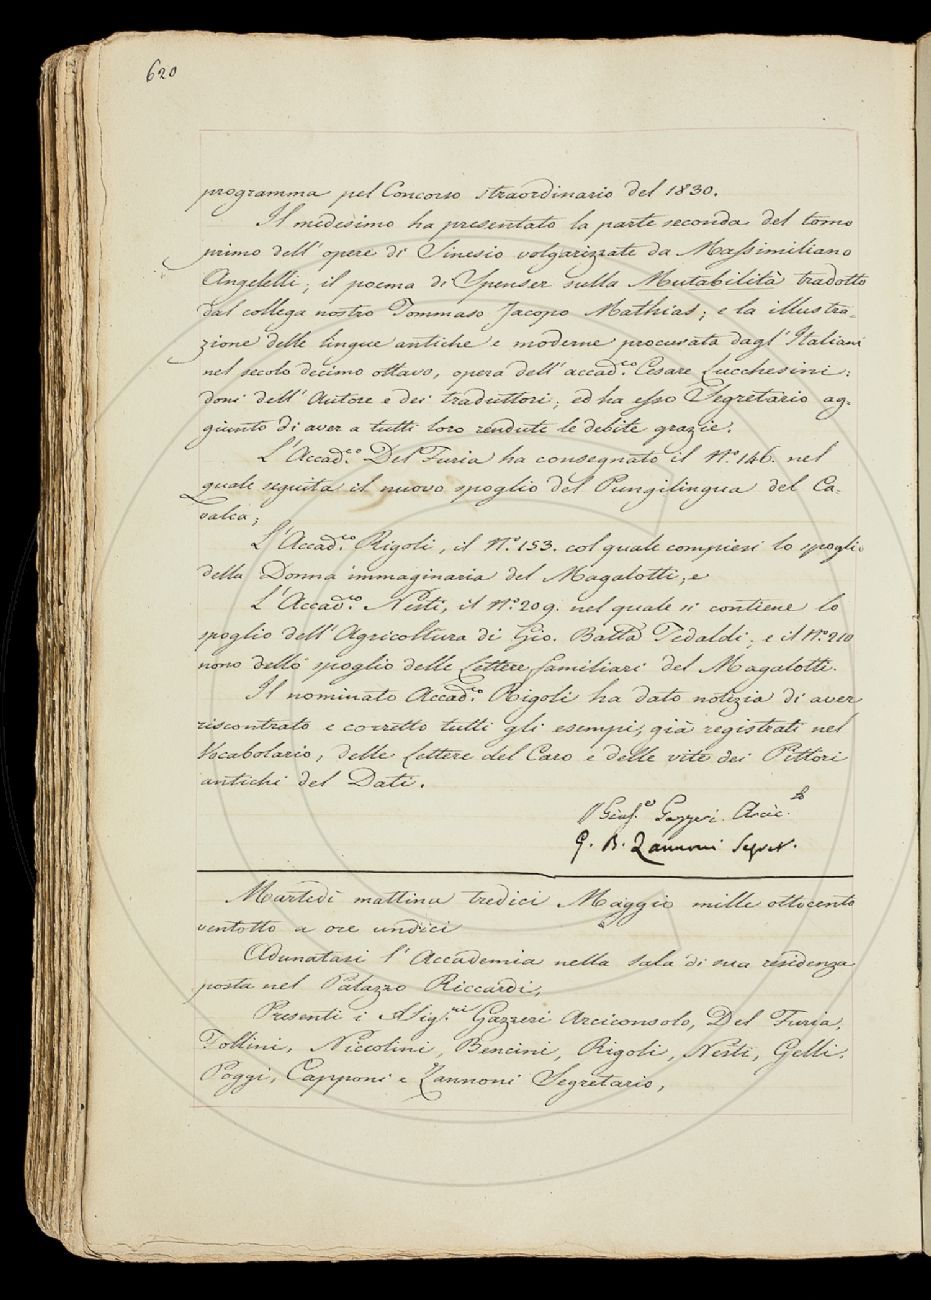 620
programma pel Concorso straordinario del 1830.
Il medesimo ha presentato la parte seconda del tomo
primo dell' opere di Sinesio volgarizzate da Massimiliano
Angelelli; il poema di Spenser sulla Mutabilità tradotto
dal collega nostro Tommaso Jacopo Mathias; e la illustra-
zione delle lingue antiche e moderne procurata dagl' Italiani
nel secolo decimo ottavo, opera dell' accad.co Cesare Lucchesini:
doni dell' Autore e dei traduttori; ed ha esso Segretario ag-
giunto di aver a tutti loro rendute le debite grazie.
L' Accad.co Del Furia ha consegnato il N.o 146. nel
quale seguita il nuovo spoglio del Pungilingua del Ca-
valca;
L' Accad.co Rigoli, il N.o 153. col quale compiesi lo spoglio
della Donna immaginaria del Magalotti, e
L' Accad.co Nesti, il N.o 209. nel quale si contiene lo
spoglio dell' Agricoltura di Gio. Batta Tedaldi; e il N.o 210
nono dello spoglio delle Lettere familiari del Magalotti.
Il nominato Accad.co Rigoli ha dato notizia di aver
riscontrato e corretto tutti gli esempi, già registrati nel
Vocabolario, delle Lettere del Caro e delle vite dei Pittori
antichi del Dati.
Gius.e Gazzeri Arcic.lo
G. B. Zannoni Segret.
Martedì mattina tredici Maggio mille ottocento
ventotto a ore undici
Adunatasi l' Accademia nella sala di sua residenza
posta nel Palazzo Riccardi,
Presenti i Sig.ri Gazzeri Arciconsolo, Del Furia,
Follini, Niccolini, Bencini, Rigoli, Nesti, Gelli,
Poggi, Capponi e Zannoni Segretario,